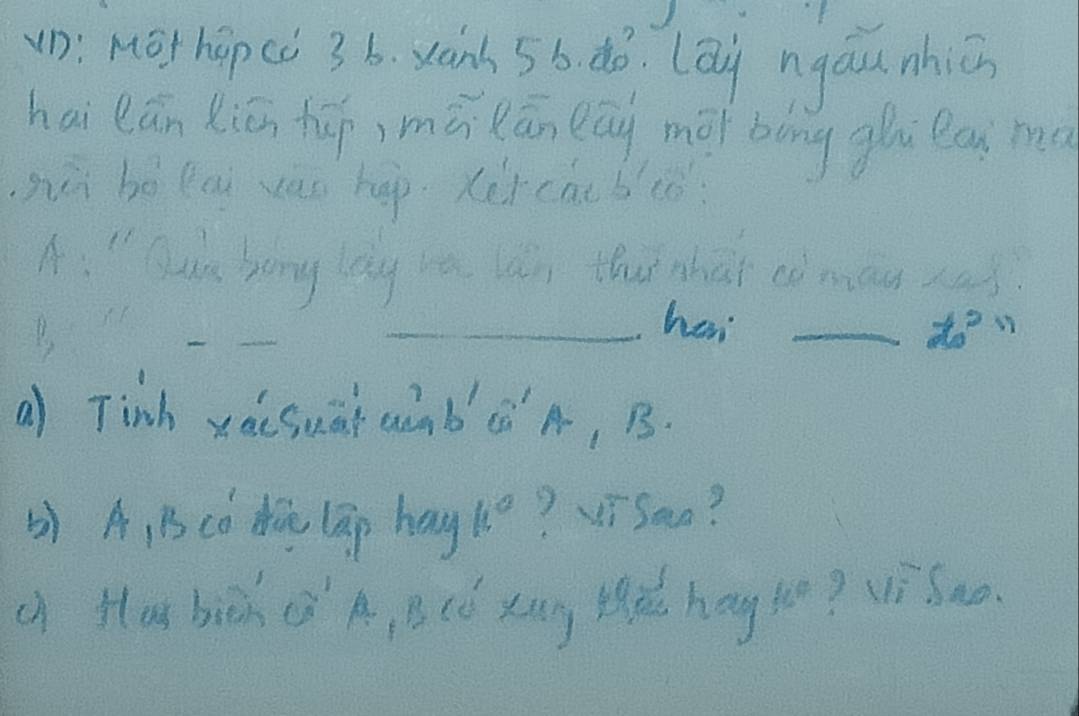 VD: Một hộp có 3 b. xanh 5 b. đỏ. Lấy ngẫu nhiên
hai lần liên tiếp, mỗi lần lấy một bóng ghi lại mà
rồi bỏ lại vào hộp. Xét các b' cố:
A: "Quả bóng lấy ra lần thứ nhất có màu xanh".
B: " — — ——— hai —— đỏ"
a) Tính xác suất của b' cố A, B.
b) A, B có độc lập hay k°? Vì sao?
c) Hai biến cố A, B có xung khắc hay k°? Vì sao.